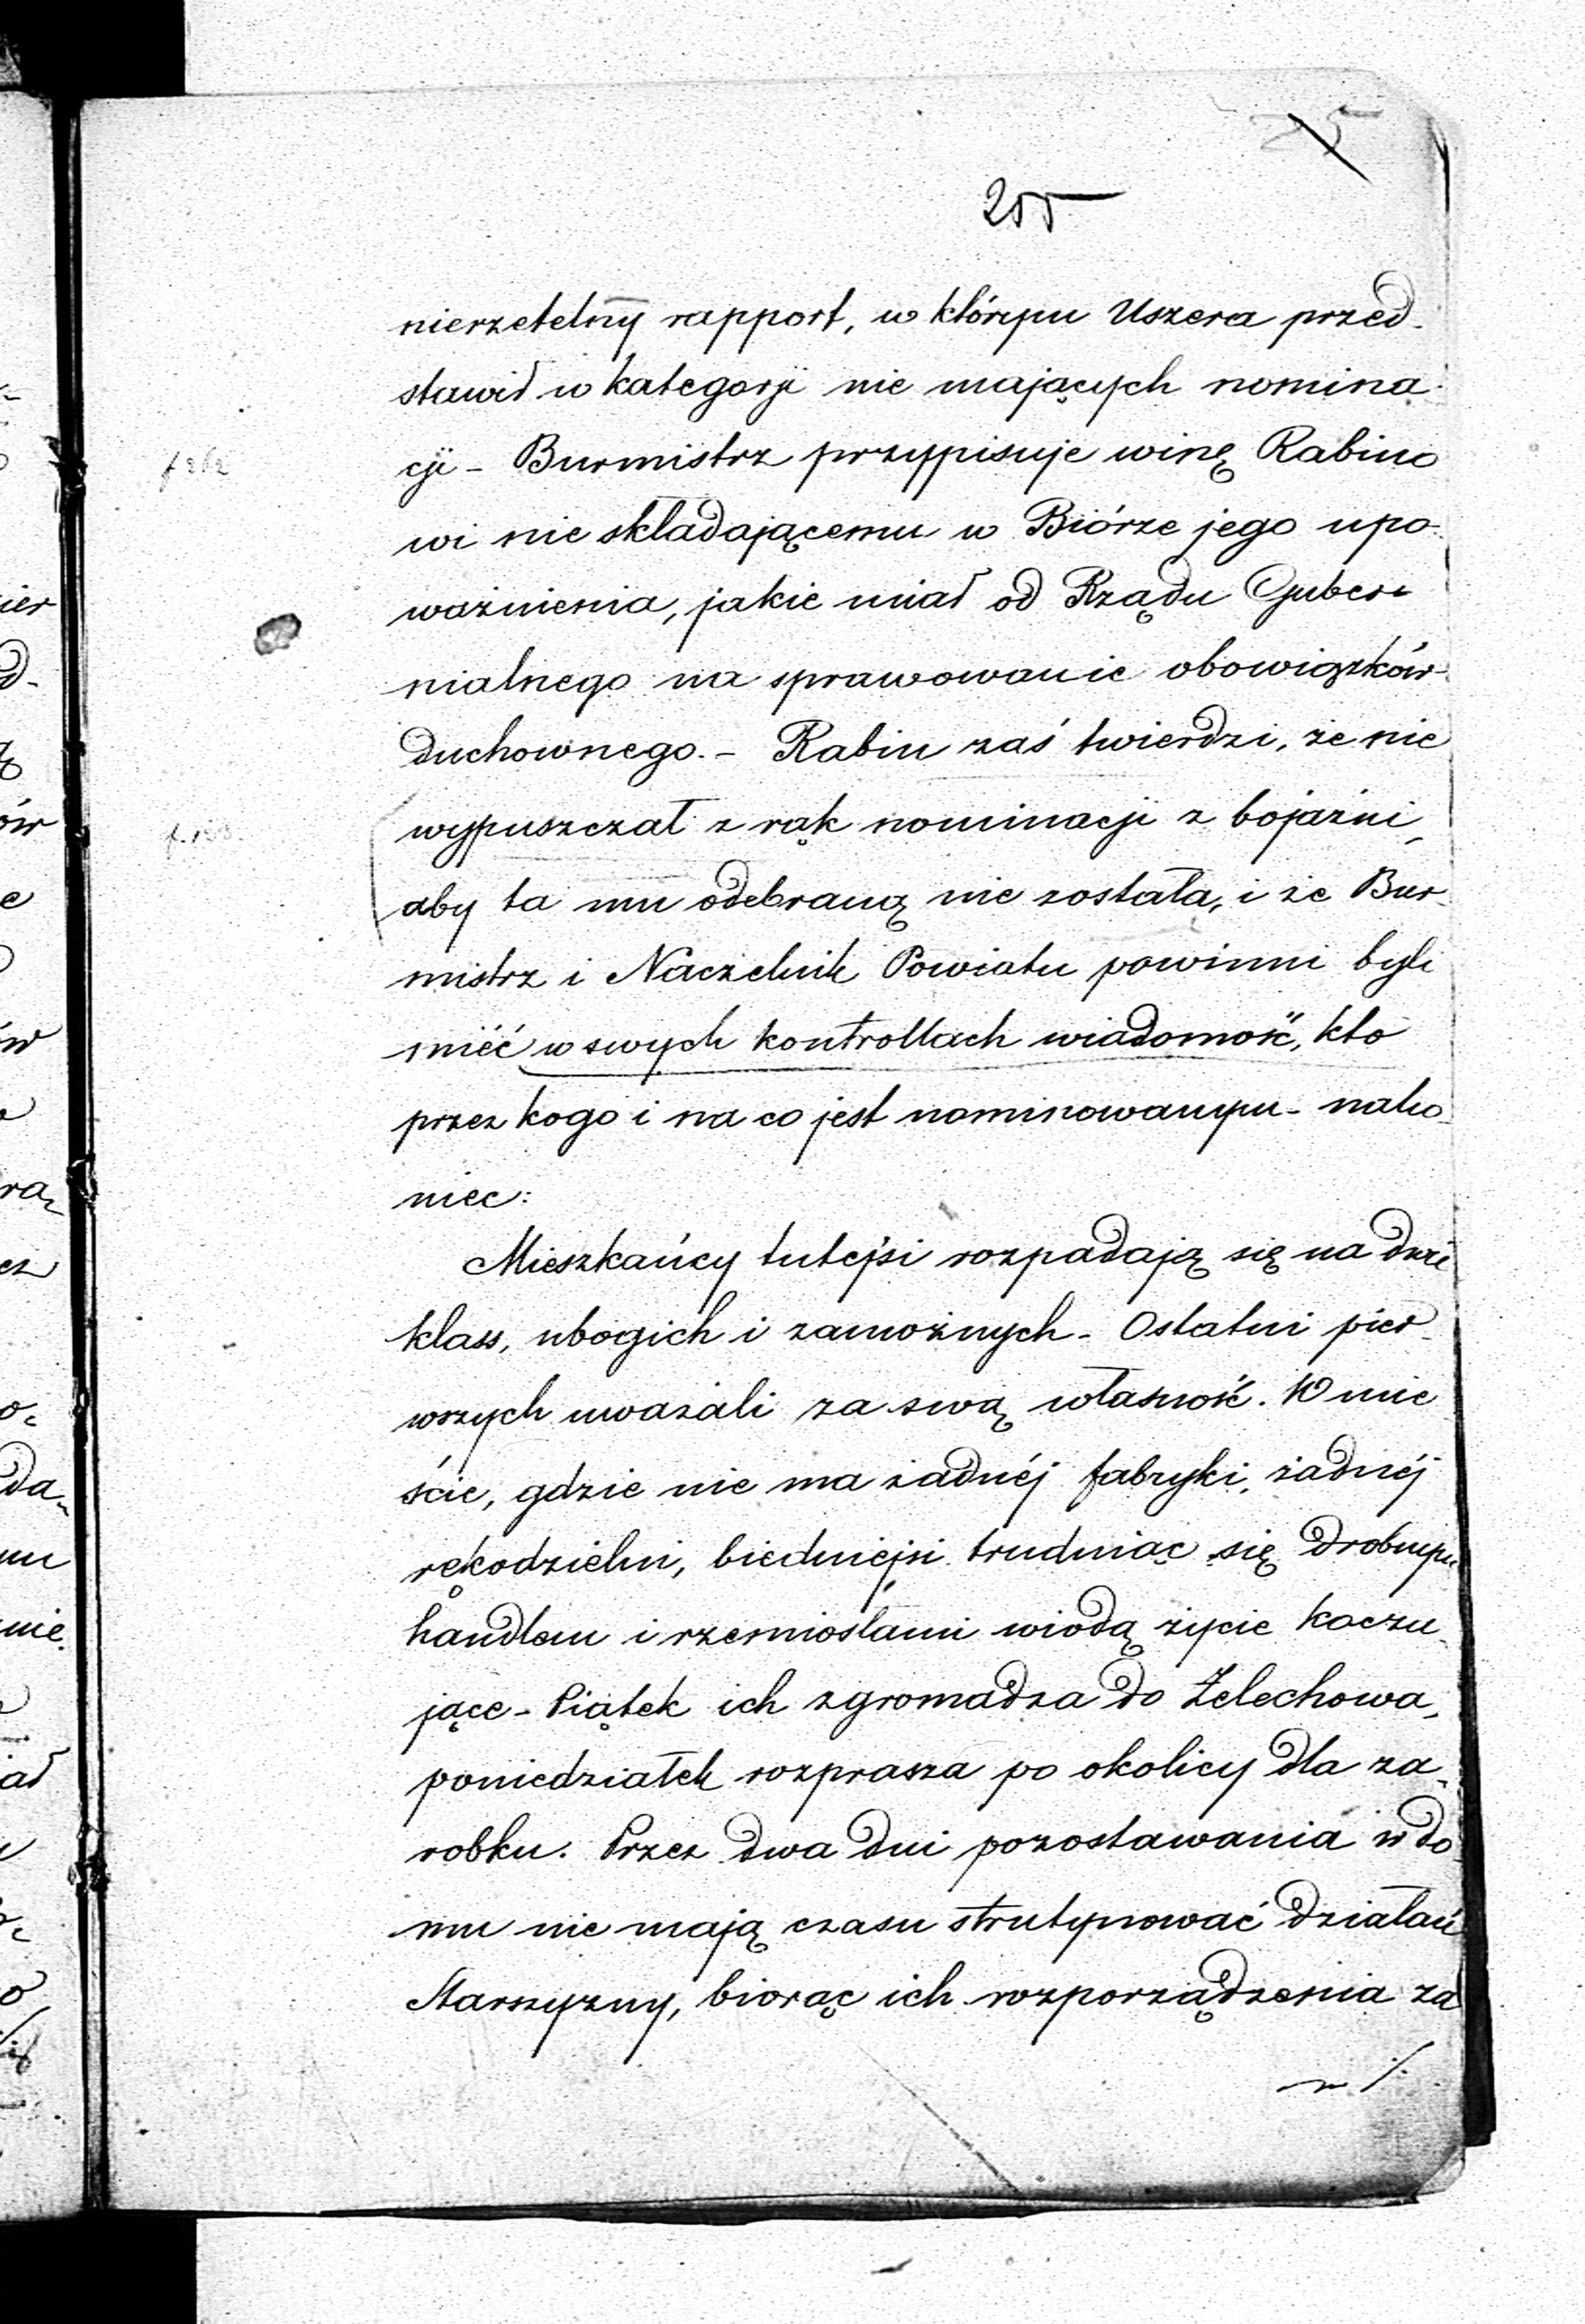 255
nierzetelny rapport, w którym Uszera przed-
stawił w kategorji nie mających nomina-
cji - Burmistrz przypisuje winę Rabino
wi nie składającemu w Biórze jego upo-
ważnienia, jakie miał od Rządu Guber-
nialnego na sprawowanie obowiązków
duchownego. - Rabin zaś twierdzi, że nie
wypuszczał z rąk nominacji z bojaźni,
aby ta mu odebraną nie została, i że Bur-
mistrz i Naczelnik Powiatu powinni byli
mieć w swych kontrollach wiadomość, kto
przez kogo i na co jest nominowanym - nako-
niec:
Mieszkańcy tutejsi rozpadają się na dwie
klass, ubogich i zamożnych - Ostatni pier-
wszych uważali za swą własność. W mie
ście, gdzie nie ma żadnéj fabryki, żadnéj
rękodzielni, biedniejsi trudniąc się drobnym
handlem i rzemiosłami wiodą życie koczu-
jące - Piątek ich zgromadza do Żelechowa,
poniedziałek rozprasza po okolicy dla za-
robku. Przez dwa dni pozostawania w do-
mu nie mają czasu strutynować działań
Starszyzny, biorąc ich rozporządzenia za